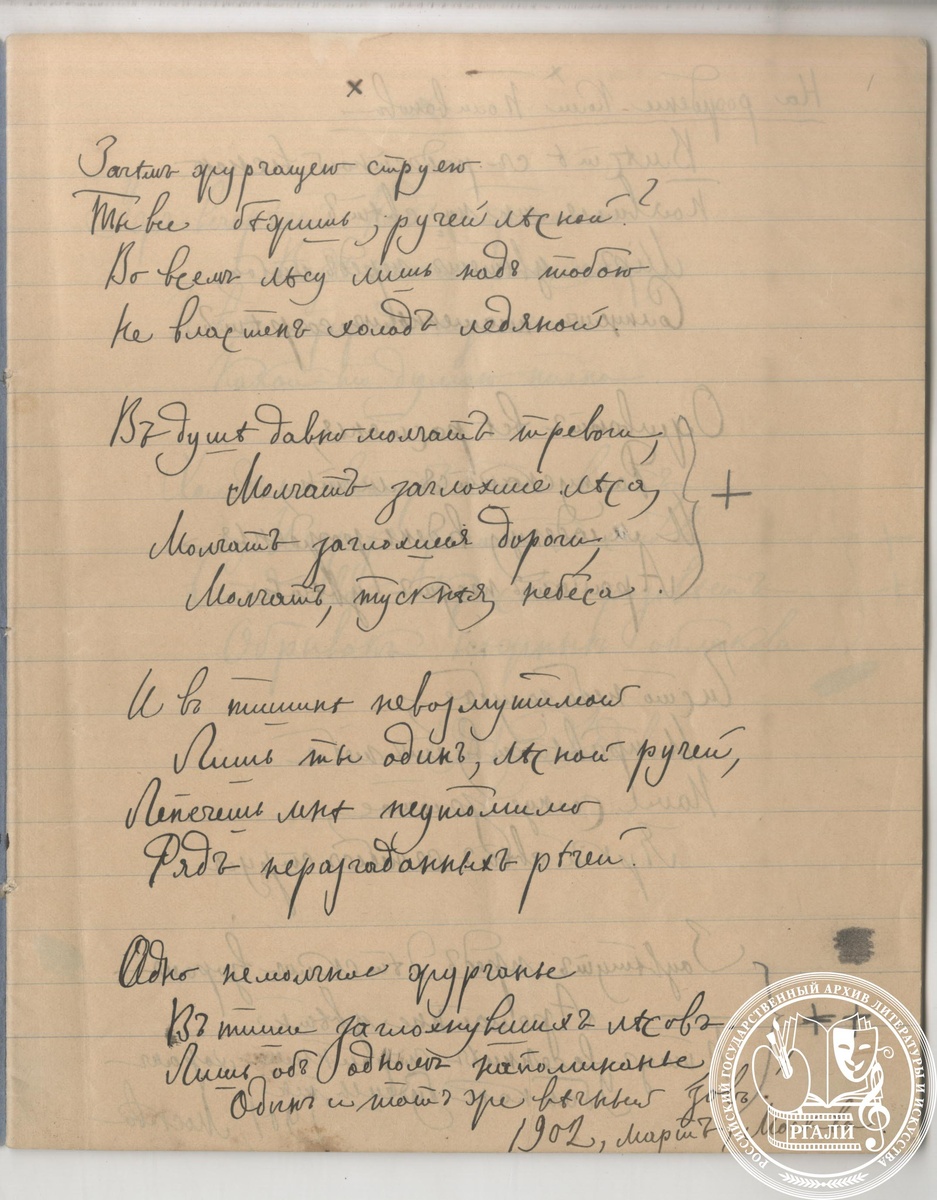 Зачѣмъ журчащею струею
Ты все бѣжишь, ручей лѣсной?
Во всемъ лѣсу лишь надъ тобою
Не властенъ холодъ ледяной.
Въ душѣ давно молчатъ тревоги,
Молчатъ заглохшие лѣса,
Молчатъ заглохшія дороги,
Молчатъ, тускнѣя, небеса.
И въ тишинѣ невозмутимой
Лишь ты одинъ, лѣсной ручей,
Лепечешь мнѣ неутомимо
Рядъ неразгаданныхъ рѣчей.
Одно немолчное журчанье
Въ тиши заглохнувшихъ лѣсовъ
Лишь объ одномъ напоминанье
Одинъ и тотъ же вѣчный зовъ!
1902, мартъ, Москва.
РОССИЙСКИЙ ГОСУДАРСТВЕННЫЙ АРХИВ ЛИТЕРАТУРЫ И ИСКУССТВА
РГАЛИ